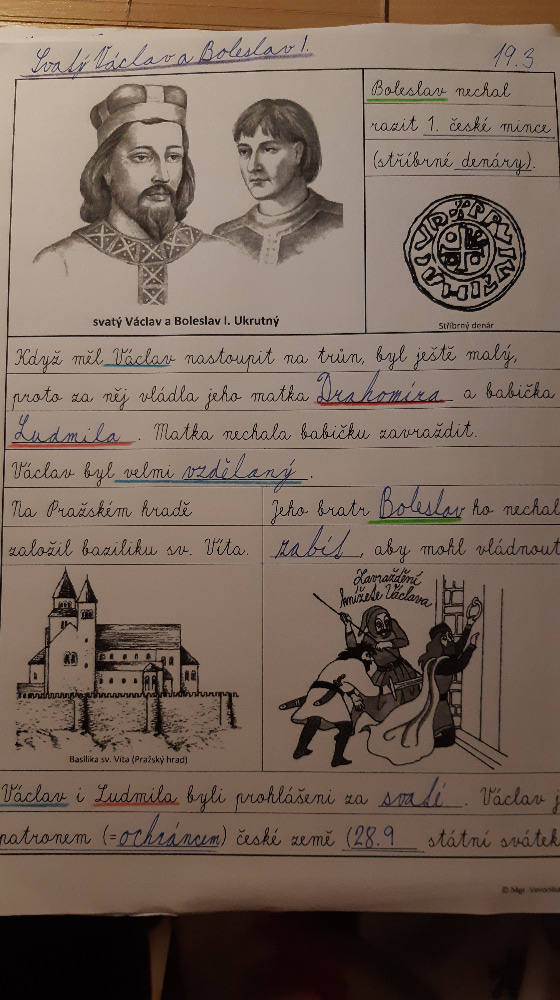 Svatý Václav a Boleslav I.
19.3
Boleslav nechal
razit 1. české mince
(stříbrné denáry).
svatý Václav a Boleslav I. Ukrutný
Stříbrný denár
Když měl Václav nastoupit na trůn, byl ještě malý,
proto za něj vládla jeho matka Drahomíra a babička
Ludmila. Matka nechala babičku zavraždit.
Václav byl velmi vzdělaný.
Na Pražském hradě
založil baziliku sv. Víta.
Jeho bratr Boleslav ho nechal
zabít, aby mohl vládnout
Zavraždění
knížete Václava
Basilika sv. Víta (Pražský hrad)
Václav i Ludmila byli prohlášeni za svaté. Václav j
patronem (=ochráncem) české země (28.9 státní svátek
© Mgr. Veronika